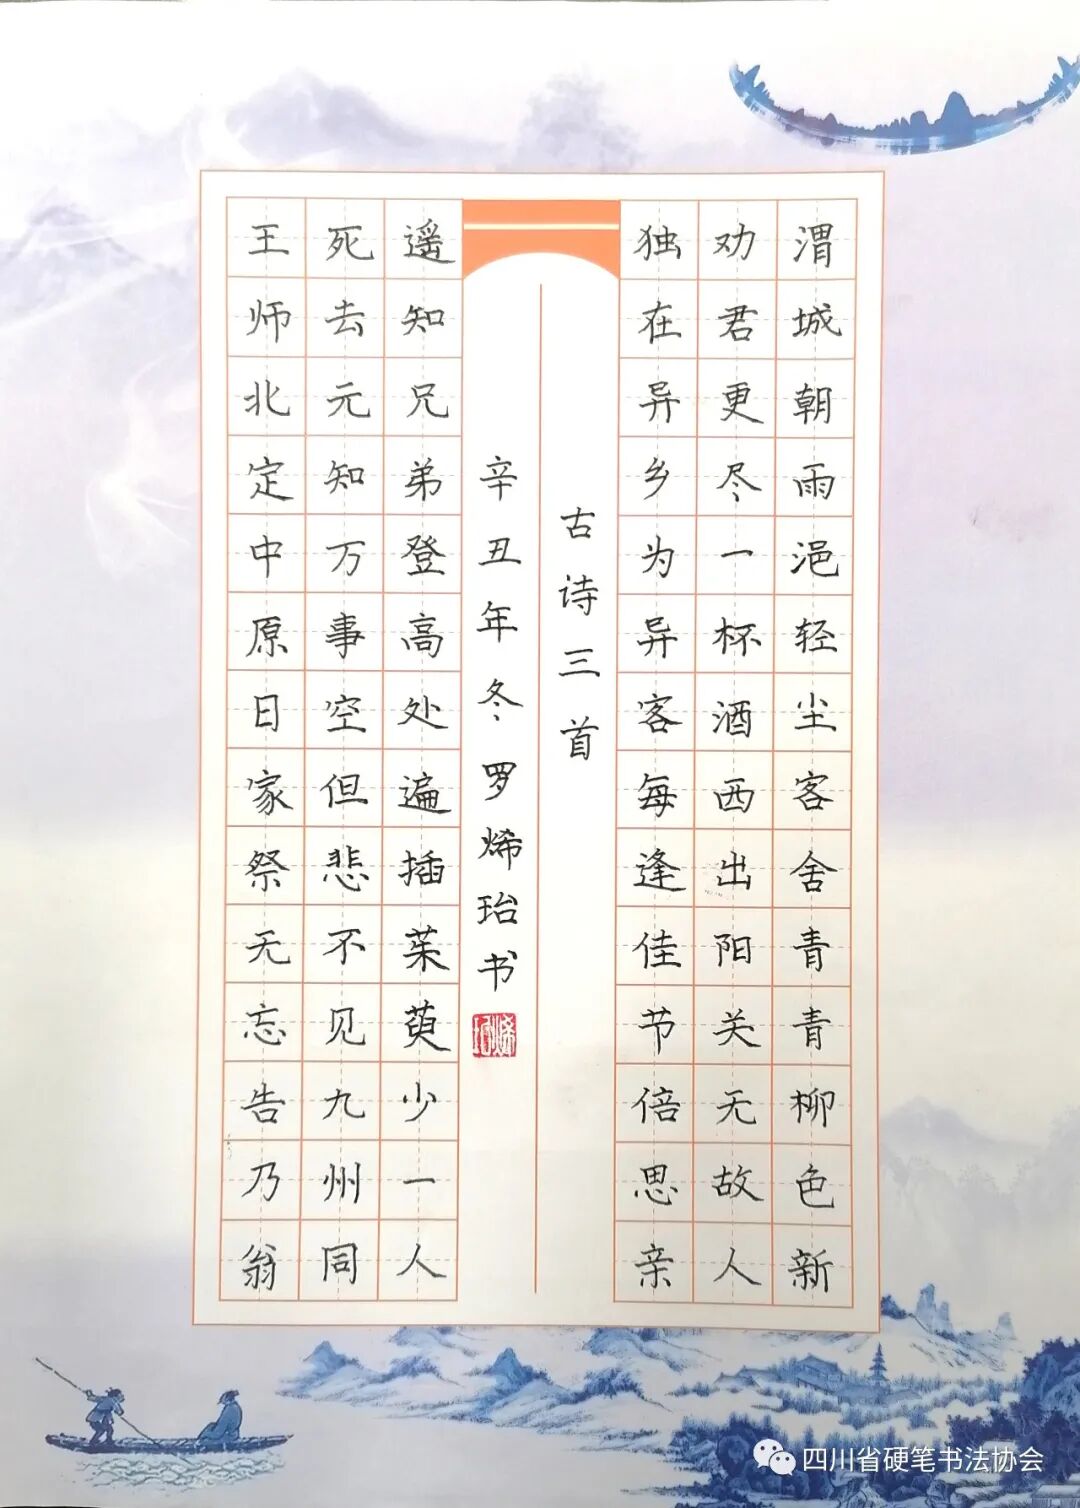 渭城朝雨浥轻尘客舍青青柳色新
劝君更尽一杯酒西出阳关无故人
独在异乡为异客每逢佳节倍思亲
古诗三首
辛丑年冬罗烯珆书
遥知兄弟登高处遍插茱萸少一人
死去元知万事空但悲不见九州同
王师北定中原日家祭无忘告乃翁
四川省硬笔书法协会